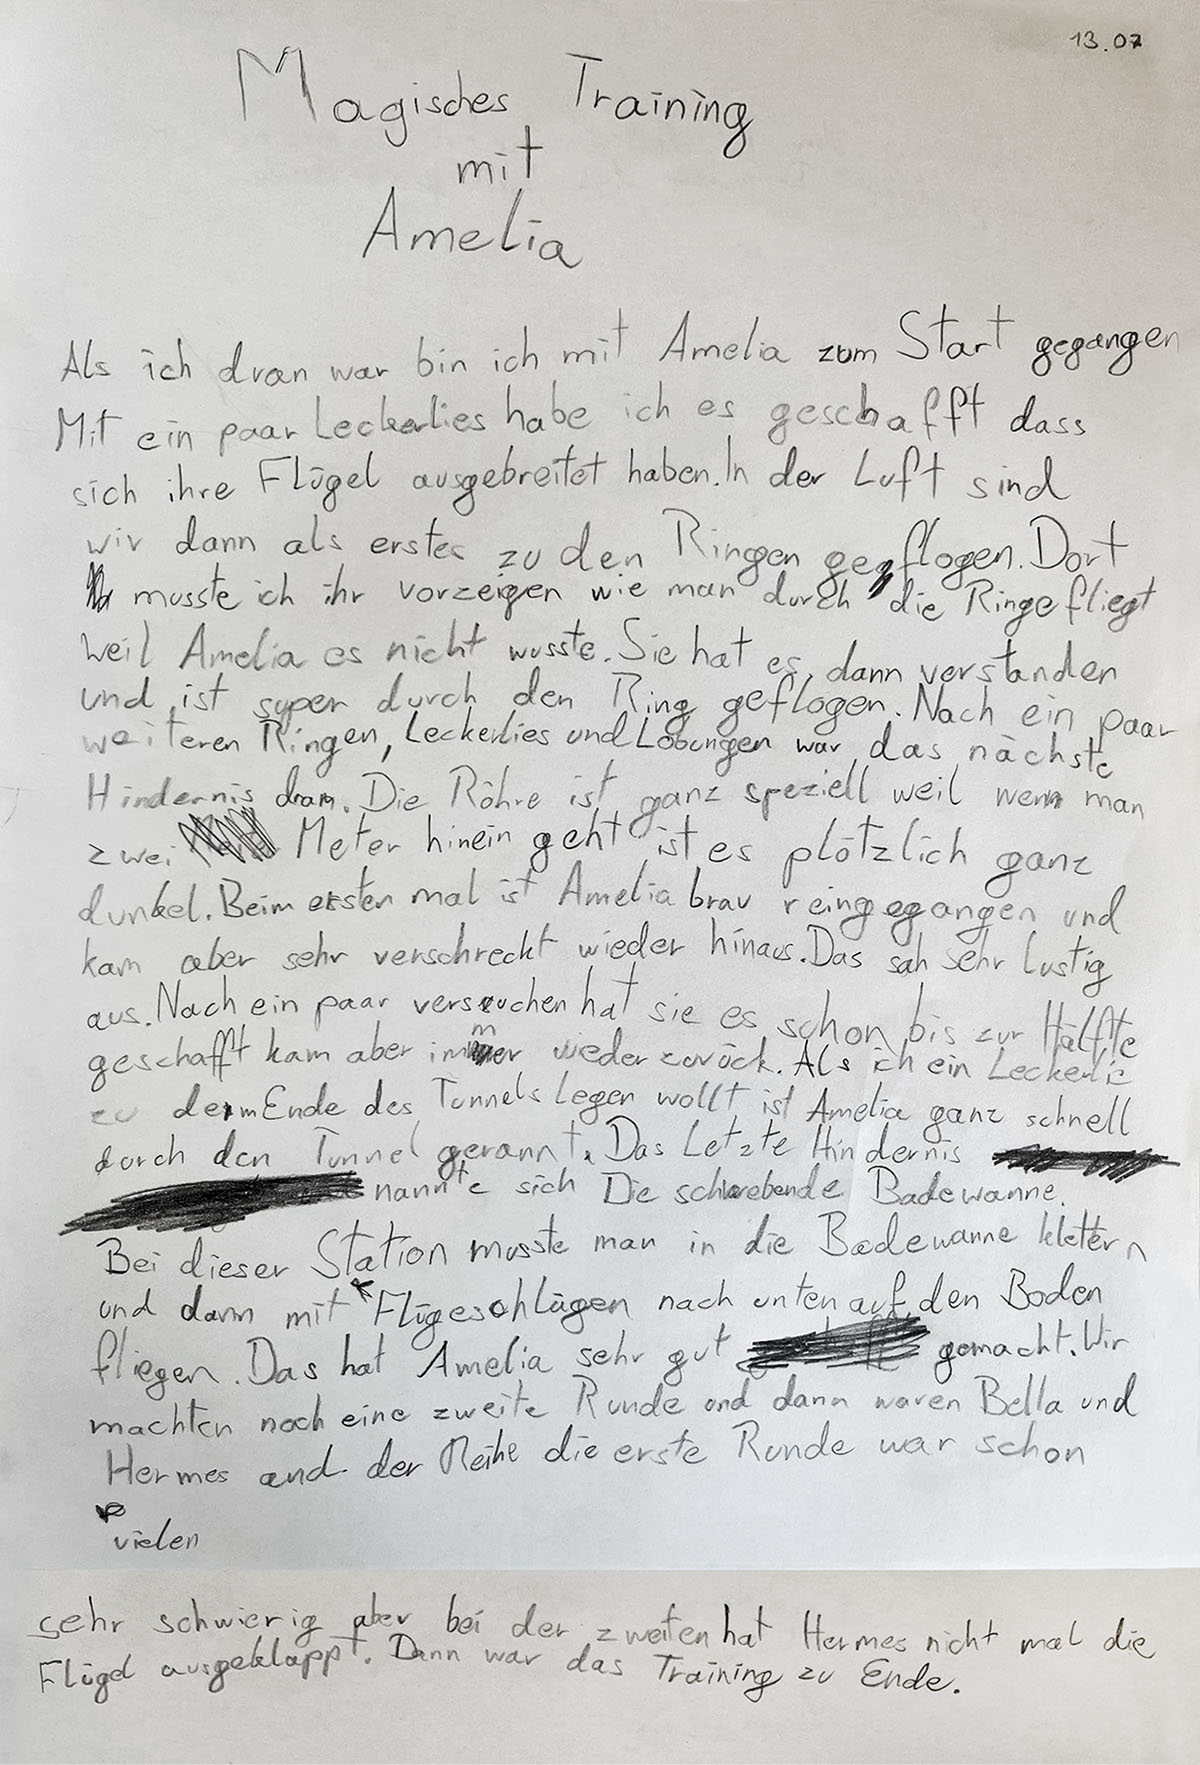 13.07
Magisches Training
mit
Amelia
Als ich dran war bin ich mit Amelia zum Start gegangen
Mit ein paar Leckerlies habe ich es geschafft dass
sich ihre Flügel ausgebreitet haben. In der Luft sind
wir dann als erstes zu den Ringen geflogen. Dort
musste ich ihr vorzeigen wie man durch die Ringe fliegt
weil Amelia es nicht wusste. Sie hat es dann verstanden
und ist super durch den Ring geflogen. Nach ein paar
weiteren Ringen, Leckerlies und Lobungen war das nächste
Hindernis dran. Die Röhre ist ganz speziell weil wenn man
zwei Meter hinein geht ist es plötzlich ganz
dunkel. Beim ersten mal ist Amelia brav reingegangen und
kam aber sehr verschreckt wieder hinaus. Das sah sehr lustig
aus. Nach ein paar versuchen hat sie es schon bis zur Hälfte
geschafft kam aber immer wieder zurück. Als ich ein Leckerlie
zu dem Ende des Tunnels legen wollt ist Amelia ganz schnell
durch den Tunnel gerannt. Das Letzte Hindernis
nannte sich Die schwebende Badewanne.
Bei dieser Station musste man in die Badewanne klettern
und dann mit Flügeschlägen nach unten auf den Boden
fliegen. Das hat Amelia sehr gut gemacht. Wir
machten noch eine zweite Runde und dann waren Bella und
Hermes and der Reihe die erste Runde war schon
vielen
sehr schwierig aber bei der zweiten hat Hermes nicht mal die
Flügel ausgeklappt. Dann war das Training zu Ende.